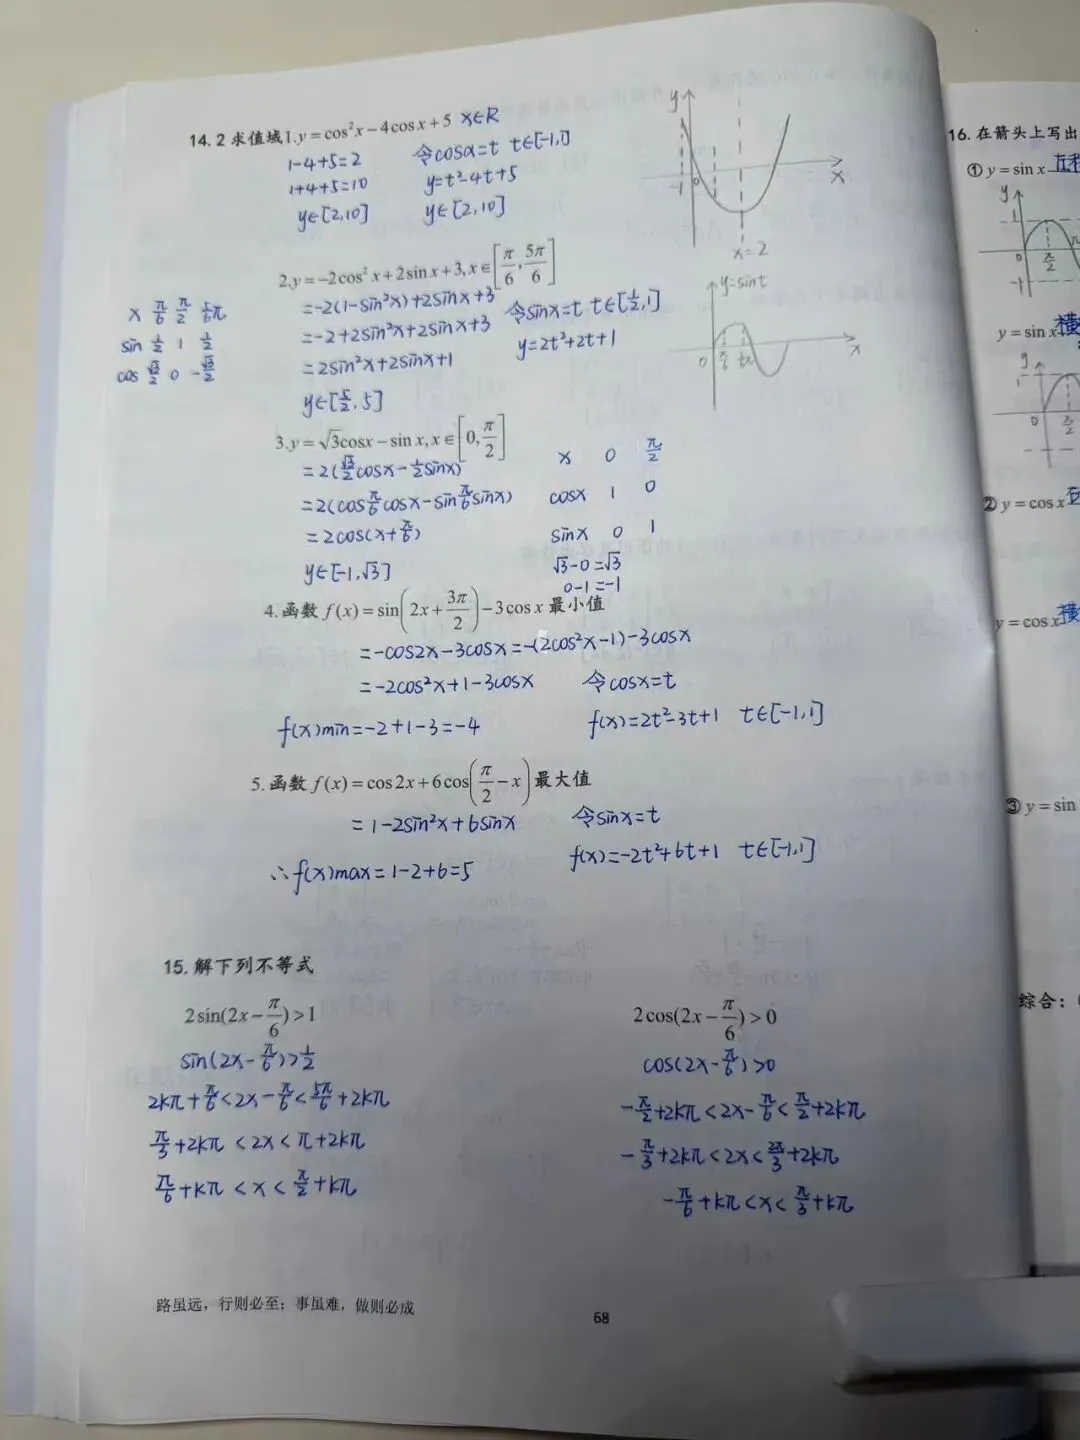 14.2 求值域1.y=cos²x-4cosx+5 x∈R
1-4+5=2 令cosα=t t∈[-1,1]
1+4+5=10 y=t²-4t+5
y∈[2,10] y∈[2,10]
y
x
-1 0
x=2
2.y=-2cos²x+2sinx+3,x∈[π/6,5π/6]
=-2(1-sin²x)+2sinx+3 令sinx=t t∈[1/2,1]
=-2+2sin²x+2sinx+3 y=2t²+2t+1
=2sin²x+2sinx+1
y∈[5/2,5]
x π/6 π/2 5/6π
sin 1/2 1 1/2
cos √3/2 0 -√3/2
y=sint
0 π/6 x
3.y=√3cosx-sinx,x∈[0,π/2]
=2(√3/2cosx-1/2sinx) x 0 π/2
=2(cosπ/6cosx-sinπ/6sinx) cosx 1 0
=2cos(x+π/6) sinx 0 1
y∈[-1,√3] √3-0=√3
0-1=-1
4.函数f(x)=sin(2x+3π/2)-3cosx最小值
=-cos2x-3cosx=-(2cos²x-1)-3cosx
=-2cos²x+1-3cosx 令cosx=t
f(x)min=-2+1-3=-4 f(x)=2t²-3t+1 t∈[-1,1]
5.函数f(x)=cos2x+6cos(π/2-x)最大值
=1-2sin²x+6sinx 令sinx=t
∴f(x)max=1-2+6=5 f(x)=-2t²+6t+1 t∈[-1,1]
15.解下列不等式
2sin(2x-π/6)>1
sin(2x-π/6)>1/2
2kπ+π/6<2x-π/6<5π/6+2kπ
π/3+2kπ<2x<π+2kπ
π/6+kπ<x<π/2+kπ
2cos(2x-π/6)>0
cos(2x-π/6)>0
-π/2+2kπ<2x-π/6<π/2+2kπ
-π/3+2kπ<2x<2π/3+2kπ
-π/6+kπ<x<π/3+kπ
路虽远，行则必至；事虽难，做则必成
68
16.在箭头上写出
①y=sinx
y
1
0 π/2 π
-1
y=sinx 横
y
1
0 π/2
②y=cosx
y=cosx 横
③y=sin
综合：